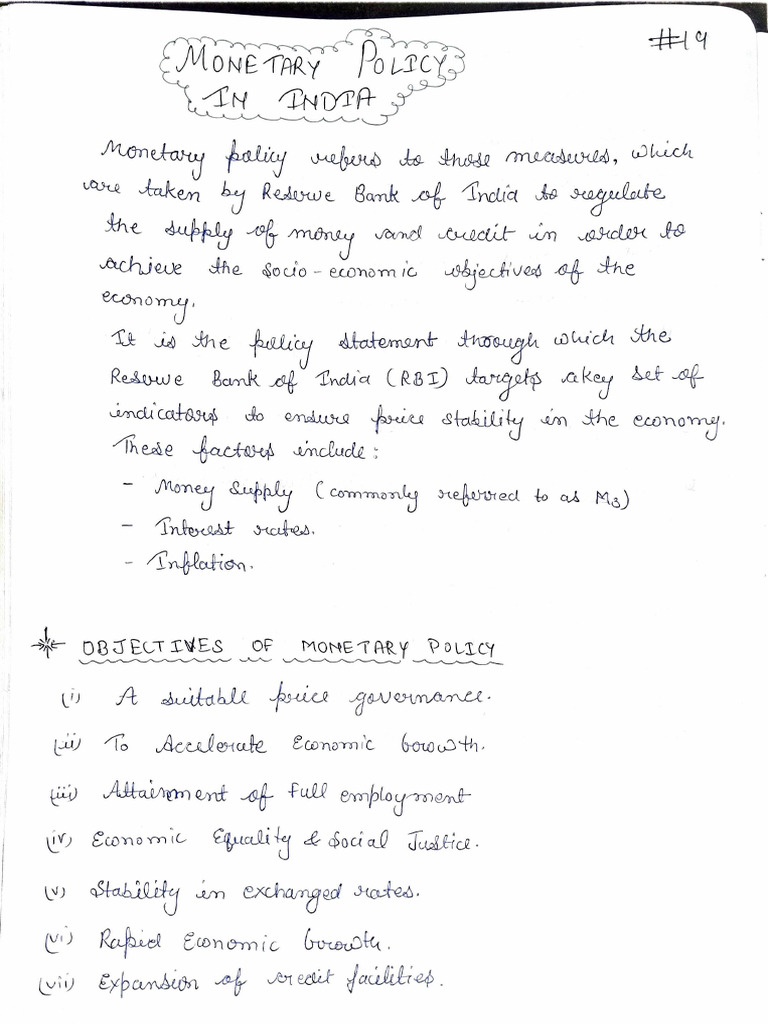 #19
MONETARY POLICY
IN INDIA
Monetary policy refers to those measures, which
are taken by Reserve Bank of India to regulate
the supply of money and credit in order to
achieve the socio-economic objectives of the
economy.
It is the policy statement through which the
Reserve Bank of India (RBI) targets a key set of
indicators to ensure price stability in the economy.
These factors include:
- Money Supply (commonly referred to as M3)
- Interest rates.
- Inflation.
OBJECTIVES OF MONETARY POLICY
(i) A suitable price governance.
(ii) To Accelerate Economic Growth.
(iii) Attainment of full employment
(iv) Economic Equality & Social Justice.
(v) Stability in exchanged rates.
(vi) Rapid Economic Growth.
(vii) Expansion of credit facilities.